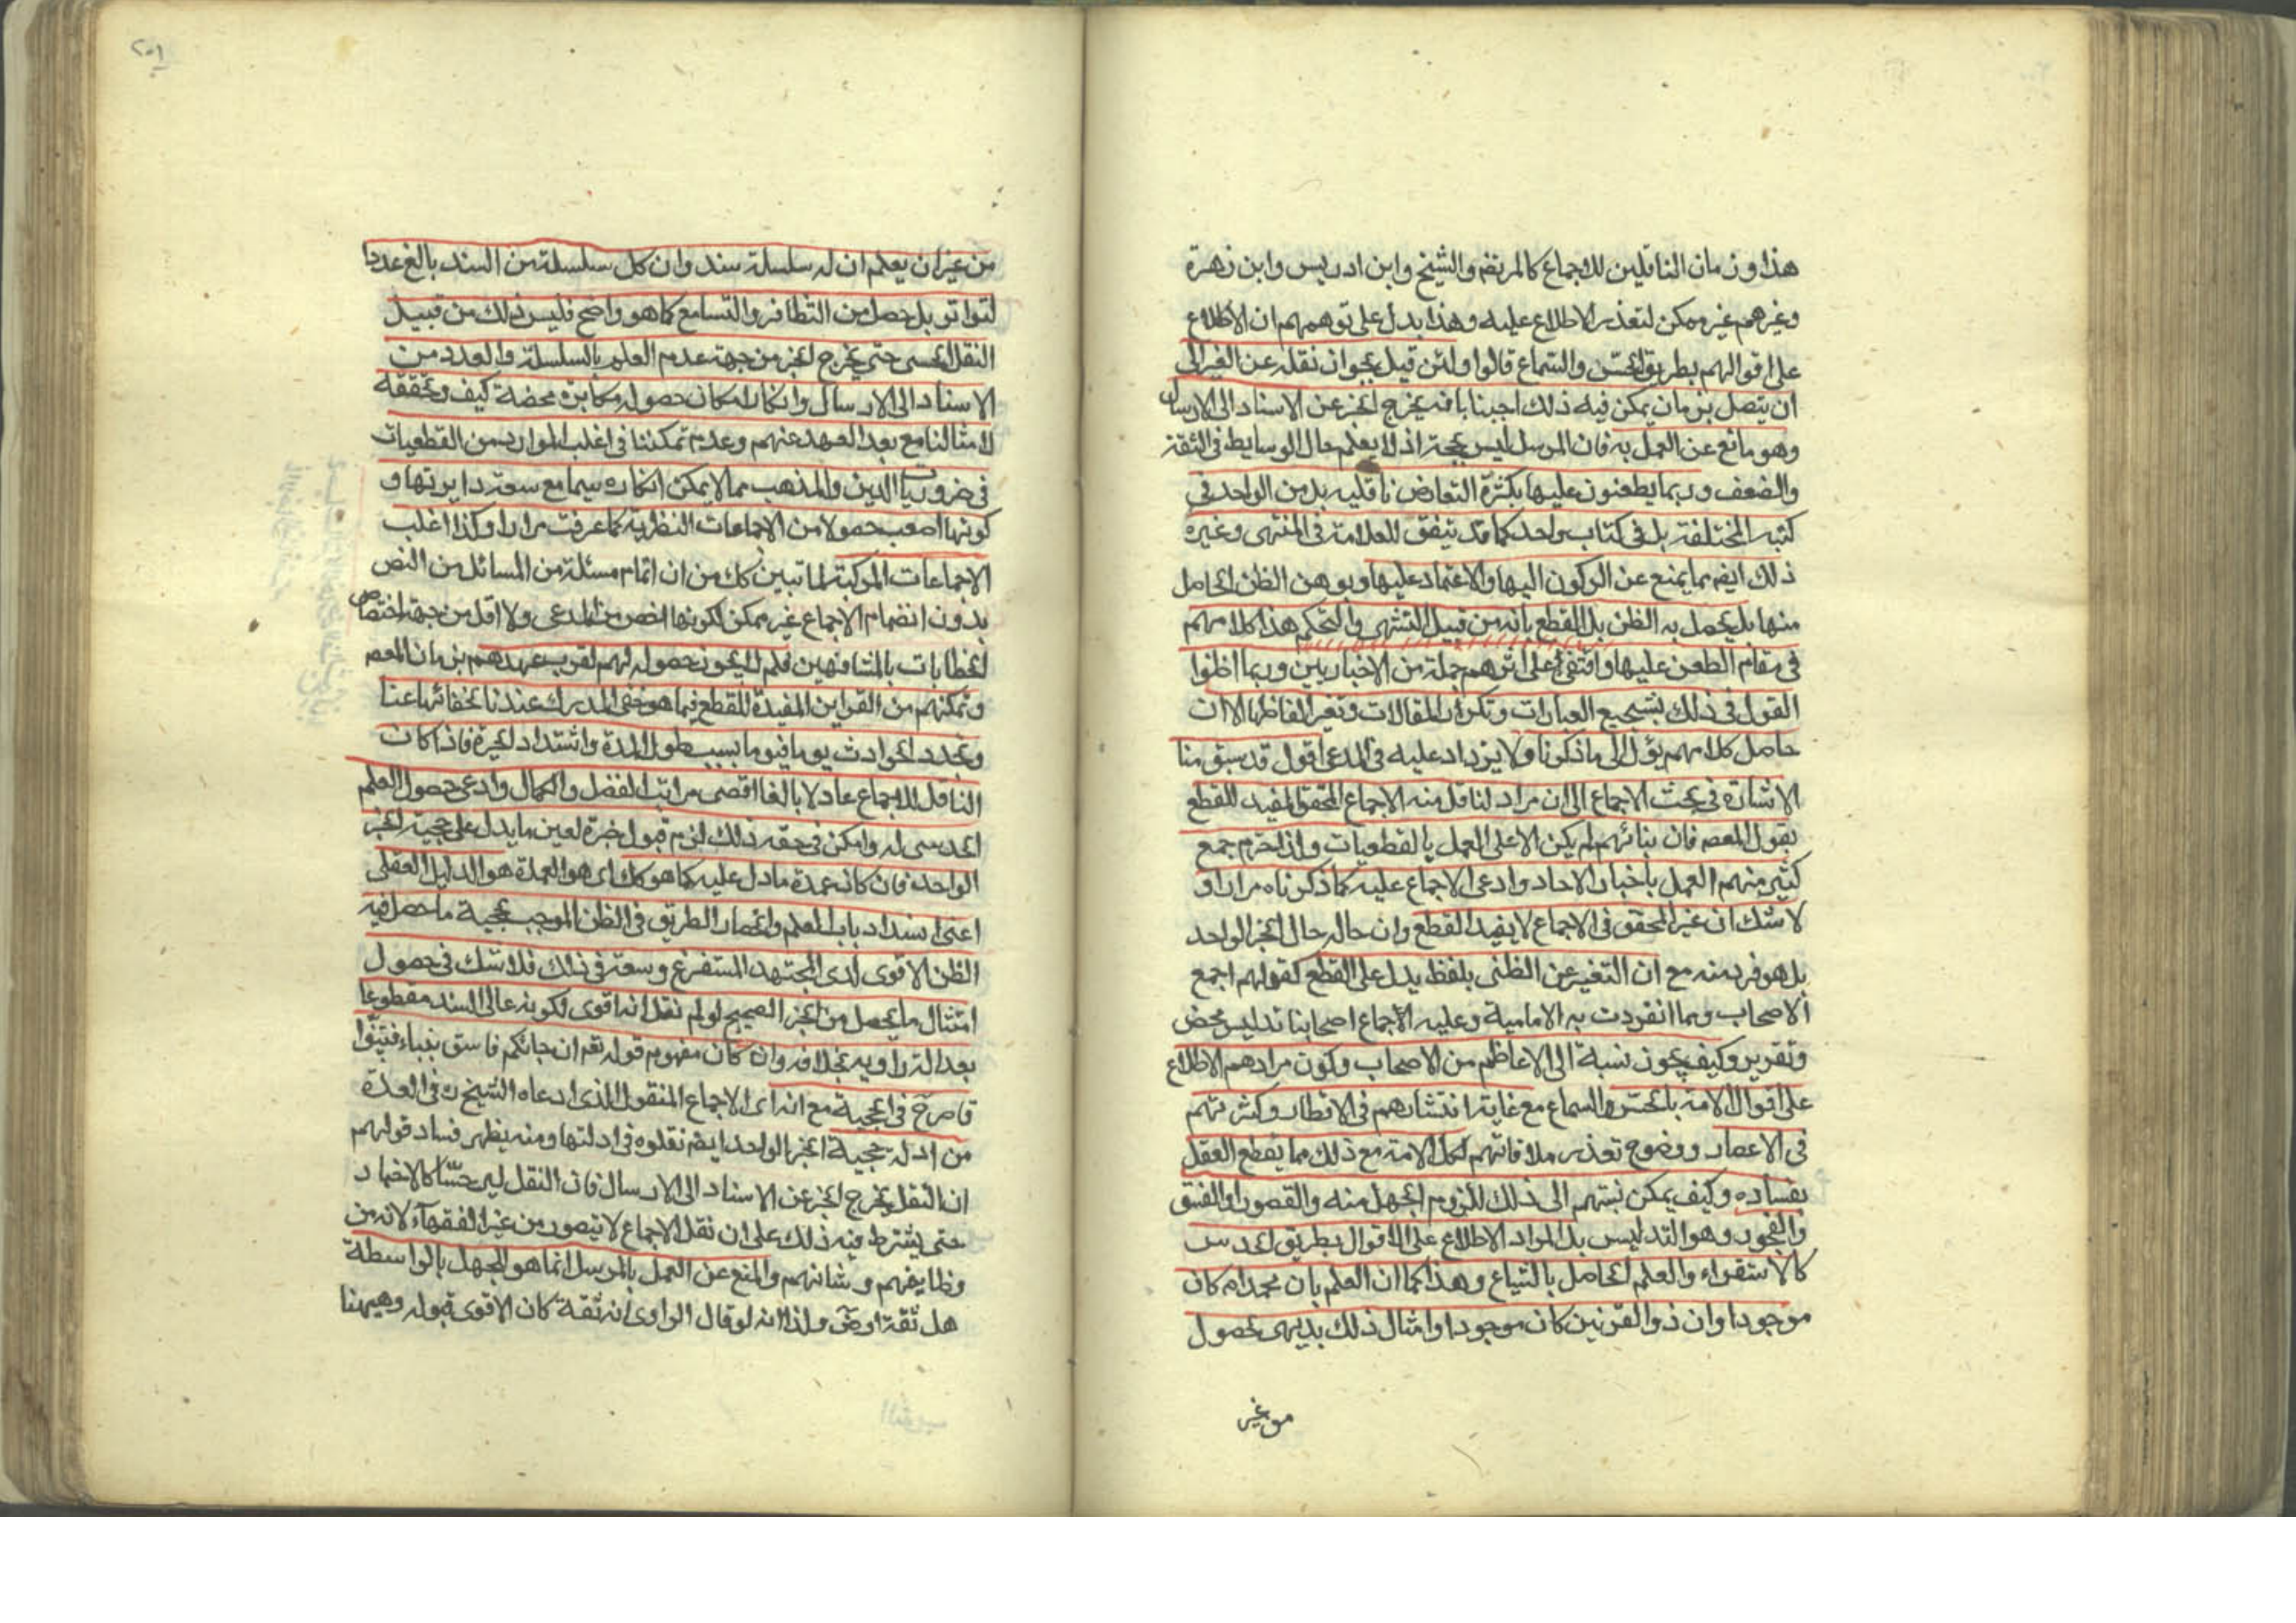 هذا وزمان الناقلين للاجماع كالمرتضى والشيخ وابن ادريس وابن زهرة
وغيرهم غير ممكن لتعذر الاطلاع عليه وهذا يدل على توهمهم ان الاطلاع
على اقوالهم بطريق الحس والسماع قالوا ولئن قيل بجواز نقله عن الغير الى
ان يتصل بزمان يمكن فيه ذلك اجبنا بانه يخرج الخبر عن الاسناد الى الارسال
وهو مانع عن العمل به فان المرسل ليس بحجة اذ لا يعلم حال الوسايط في الثقة
والضعف وربما يطعنون عليها بكثرة التعارض ناقليه بل من الواحد في
كتبه المختلفة بل في كتاب واحد كما قد يتفق للعلامة في المنتهى وغيره
ذلك ايضم مما يمنع عن الركون اليها والاعتماد عليها ويوهن الظن الحاصل
منها بل يحصل به الظن بل القطع بانه من قبيل التشهى والتحكم هذا كلامهم
في مقام الطعن عليها واقتفى على اثرهم جملة من الاخباريين وربما اطنبوا
القول في ذلك بتسجيع العبارات وتكرار المقالات وتغير الفاظها الا ان
حاصل كلامهم يؤل الى ما ذكرنا ولا يزداد عليه في المدعى اقول قد سبق منا
الاشارة في بحث الاجماع الى ان مراد الناقل منه الاجماع المحقق المفيد للقطع
بقول المعصم فان بنائهم لم يكن الا على العمل بالقطعيات ولذا حرم جمع
كثير منهم العمل باخبار الاحاد وادعى الاجماع عليه كما ذكرناه مرارا و
لا شك ان غير المحقق في الاجماع لا يفيد القطع وان حاله حال الخبر الواحد
بل هو فرد منه مع ان التعبير عن الظنى بلفظ يدل على القطع كقولهم اجمع
الاصحاب ومما انفردت به الامامية وعليه الاجماع اصحابنا تدليس محض
وتقرير وكيف يجوز نسبة الى الاعاظم من الاصحاب وكون مرادهم الاطلاع
على اقوال الامة بالحس والسماع مع غاية انتشارهم في الاقطار وكثرتهم
في الاعصار ووضوح تعذر ملاقاتهم لكل الامة مع ذلك مما يقطع العقل
بفساده وكيف يمكن نسبتهم الى ذلك للزوم الجهل منه والقصور او الفسق
والفجور وهو التدليس بل المراد الاطلاع على الاقوال بطريق الحدس
كالاستقراء والعلم الحاصل بالشياع وهذا كما ان العلم بان محمدا ص كان
موجودا وان ذو القرنين كان موجودا وامثال ذلك بديهى لحصول
من غير
٢٠١
من غير ان يعلم ان له سلسلة سند وان كل سلسلة من السند بالغ عددا
لتواتر بل حصل من التظافر والتسامع كما هو واضح فليس ذلك من قبيل
النقل الحسى حتى يخرج الخبر من جهة عدم العلم بالسلسلة والعدد من
الاسناد الى الارسال وانكار امكان حصوله مكابرة محضة كيف وتحققه
لامثالنا مع بعد العهد عنهم وعدم تمكننا في اغلب الموارد من القطعيات
في ضروريات الدين والمذهب مما لا يمكن انكاره سيما مع سعة دايرتها و
كونها اصعب حصولا من الاجماعات النظرية كما عرفت مرارا وكذا اغلب
الاجماعات المركبة لما تبين لك من ان اتمام مسئلة من المسائل من النص
بدون انضمام الاجماع غير ممكن لكونها اخص من المدعى ولا اقل من جهة اختصاص
الخطابات بالمشافهين فلم لا يجوز حصوله لهم لقرب عهدهم بزمان المعصم
وتمكنهم من القراين المفيدة للقطع فيما هو خفى المدرك عندنا لخفائها عنا
وتجدد الحوادث يوما فيوما بسبب طول المدة واشتداد الحيرة فاذا كان
الناقل للاجماع عادلا بالغا اقصى مراتب الفضل والكمال وادعى حصول العلم
الحدسى له وامكن في حقه ذلك لزم قبول خبره لعين ما يدل على حجية الخبر
الواحد فان كان عمدة ما دل عليه كما هو كك اى هو العمدة هو الدليل العقلى
اعنى انسداد باب العلم وانحصار الطريق في الظن الموجب بحجية ما حصل فيه
الظن الاقوى لدى المجتهد المستفرغ وسعه في ذلك فلا شك في حصول
امتثال ما يحصل من الخبر الصحيح لو لم نقل انه اقوى لكونه عالى السند مقطوعا
بعدالة راويه بخلافه وان كان مفهوم قوله تعم ان جائكم فاسق بنباء فتبينوا
فاصرح في الحجية مع انه اى الاجماع المنقول الذى ادعاه الشيخ ره في العدة
من ادلة حجية الخبر الواحد ايضم نقلوه في ادلتها ومنه يظهر فساد قولهم
ان النقل يخرج الخبر عن الاسناد الى الارسال فان النقل ليس حسّا كالاخبار
حتى يشترط فيه ذلك على ان نقل الاجماع لا يتصور من غير الفقهاء لانه من
وظايفهم وشانهم والمنع عن العمل بالمرسل انما هو للجهل بالواسطة
هل ثقة او ض ولذا انه لو قال الراوى انه ثقة كان الاقوى قبوله وهيهنا